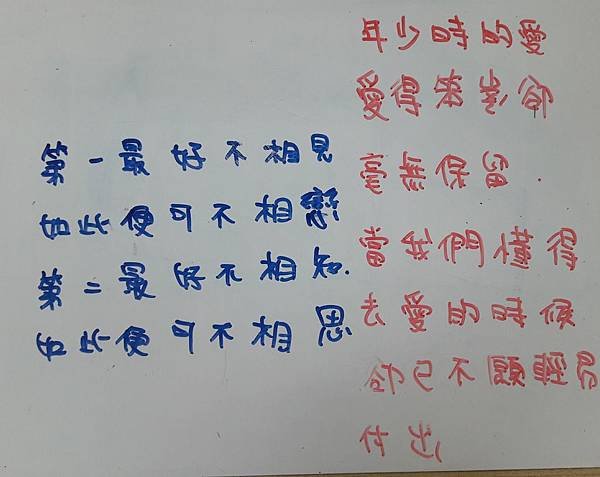 第一最好不相見
如此便可不相戀
第二最好不相知.
如此便可不相思
年少時的愛
愛得笨拙卻
毫無保留.
當我們懂得
去愛的時候
卻已不願輕易
付出